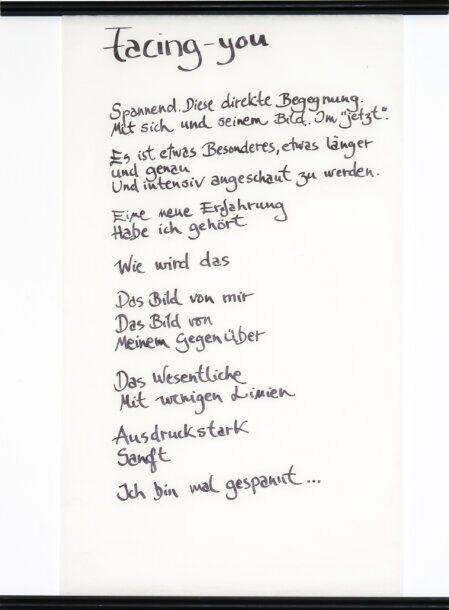 Facing-you
Spannend. Diese direkte Begegnung.
Mit sich und seinem Bild. Im "jetzt".
Es ist etwas Besonderes, etwas länger
und genau
Und intensiv angeschaut zu werden.
Eine neue Erfahrung
Habe ich gehört
Wie wird das
Das Bild von mir
Das Bild von
Meinem Gegenüber
Das Wesentliche
Mit wenigen Linien
Ausdruckstark
Sanft
Ich bin mal gespannt ...